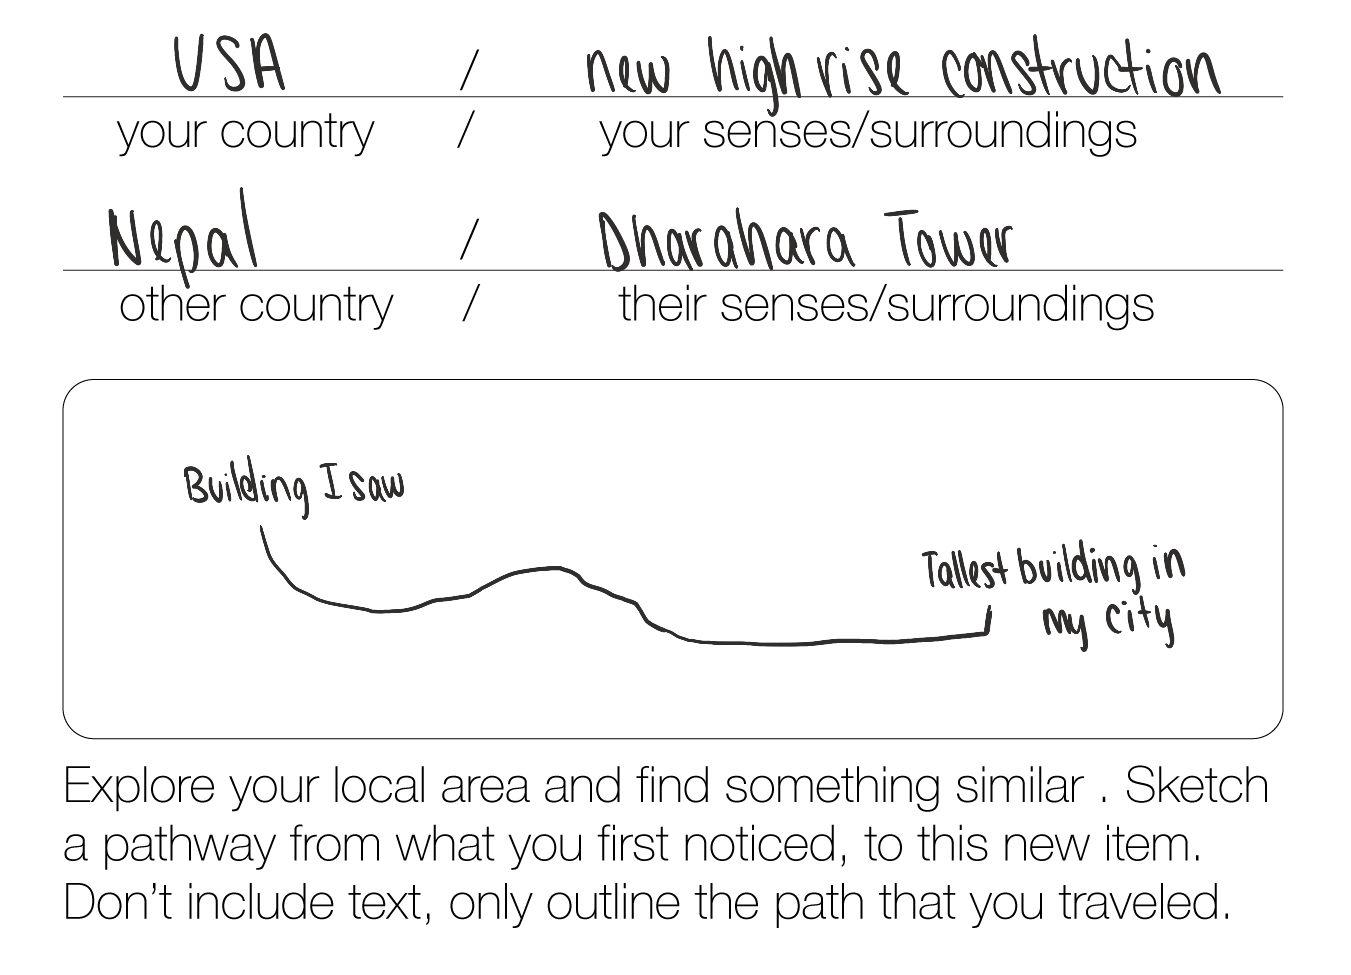 USA / new high rise construction
your country / your senses/surroundings
Nepal / Dharahara Tower
other country / their senses/surroundings
Building I saw
Tallest building in
my city
Explore your local area and find something similar . Sketch
a pathway from what you first noticed, to this new item.
Don't include text, only outline the path that you traveled.